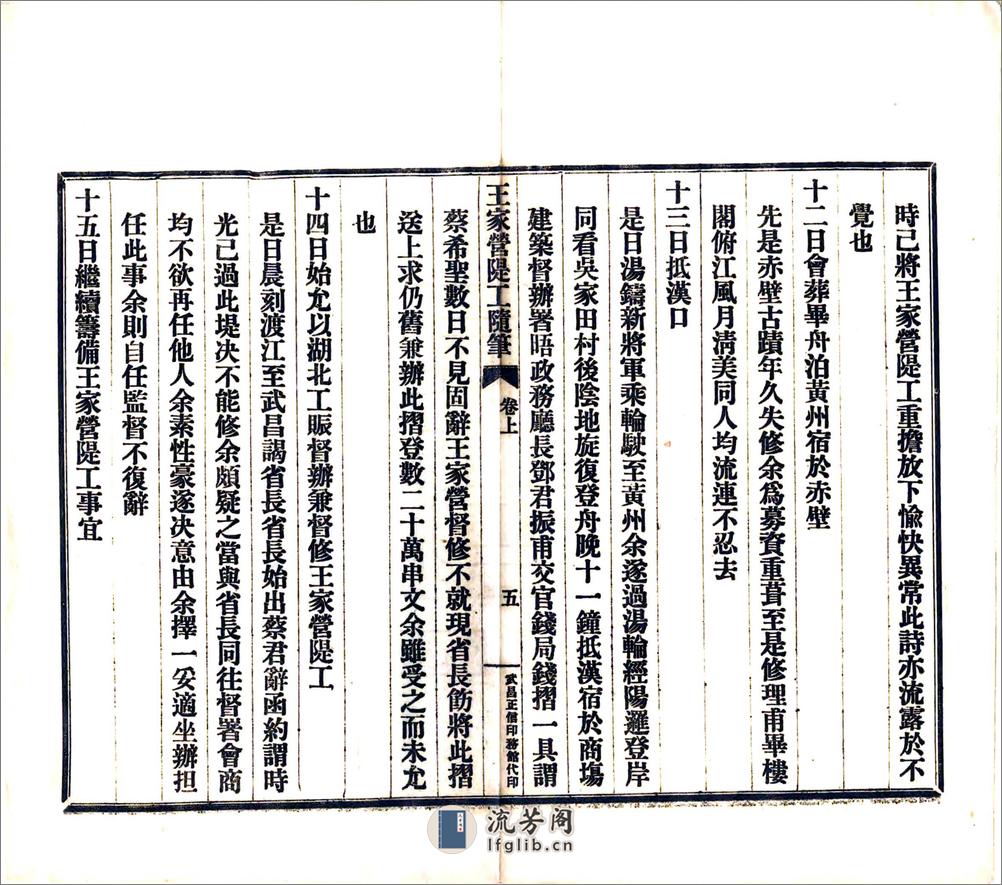 時己將王家營隄工重擔放下愉快異常此詩亦流露於不
覺也
十二日會葬畢舟泊黃州宿於赤壁
先是赤壁古蹟年久失修余爲募資重葺至是修理甫畢樓
閣俯江風月淸美同人均流連不忍去
十三日抵漢口
是日湯鑄新將軍乘輪駛至黃州余遂過湯輪經陽邏登岸
同看吳家田村後陰地旋復登舟晚十一鐘抵漢宿於商塲
建築督辦署晤政務廳長鄧君振甫交官錢局錢摺一具謂
王家營隄工隨筆 卷上 五 武昌正信印務館代印
蔡希聖數日不見固辭王家營督修不就現省長飭將此摺
送上求仍舊兼辦此摺登數二十萬串文余雖受之而未允
也
十四日始允以湖北工賑督辦兼督修王家營隄工
是日晨刻渡江至武昌謁省長省長始出蔡君辭函約謂時
光己過此堤决不能修余頗疑之當與省長同往督署會商
均不欲再任他人余素性豪遂决意由余擇一妥適坐辦担
任此事余則自任監督不復辭
十五日繼續籌備王家營隄工事宜
流芳阁
lfglib.cn